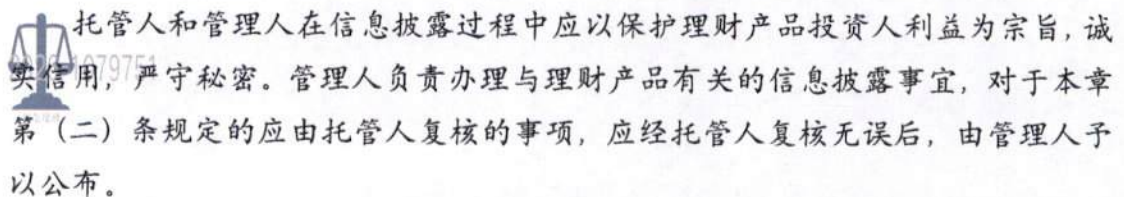 托管人和管理人在信息披露过程中应以保护理财产品投资人利益为宗旨，诚
实信用，严守秘密。管理人负责办理与理财产品有关的信息披露事宜，对于本章
第（二）条规定的应由托管人复核的事项，应经托管人复核无误后，由管理人予
以公布。